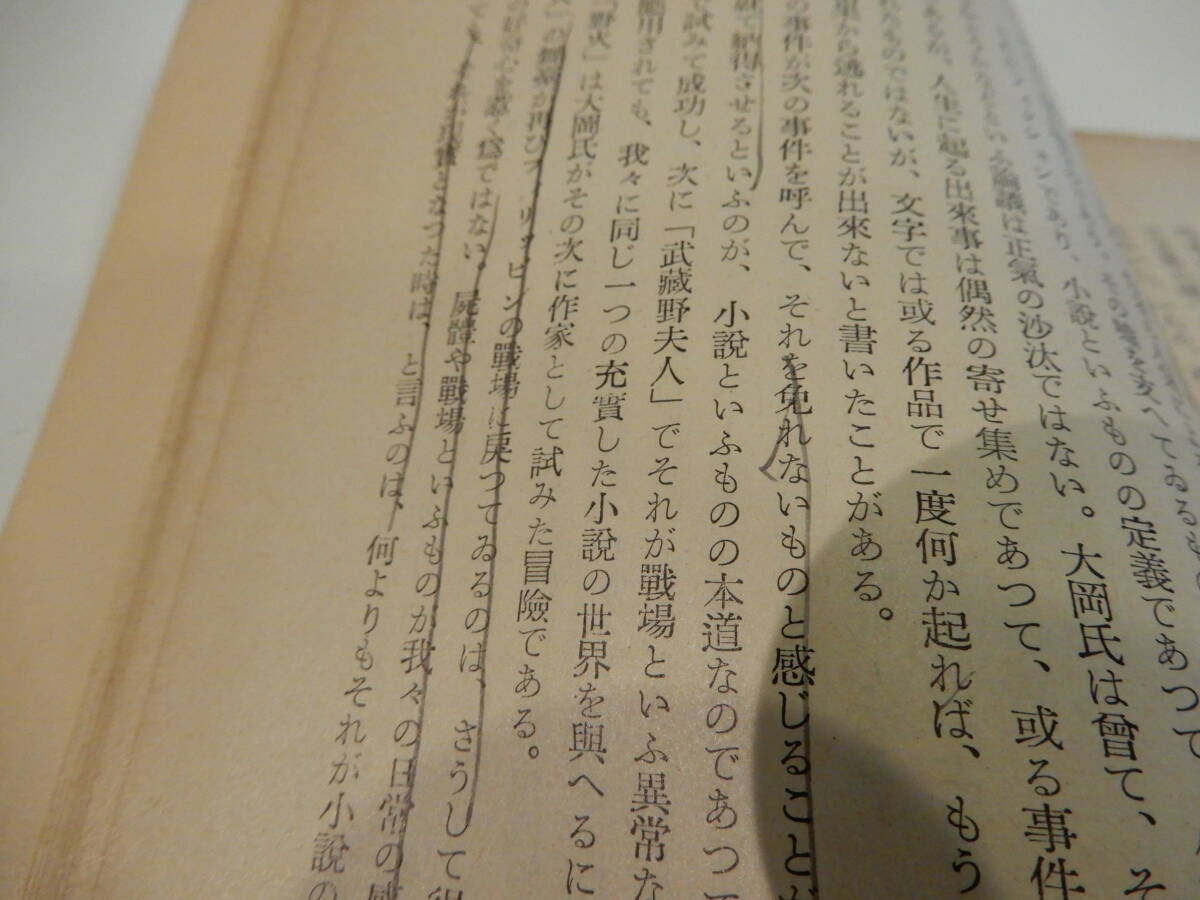 小說といふものの定義であつて、そ
論議は正氣の沙汰ではない。大岡氏は曾て、
人生に起る出來事は偶然の寄せ集めであつて、或る事件
れたものではないが、文字では或る作品で一度何か起れば、もう
から逃れることが出來ないと書いたことがある。
の事件が次の事件を呼んで、それを免れないものと感じることが
納得させるといふのが、小說といふものの本道なのであつて
で試みて成功し、次に「武藏野夫人」でそれが戰場といふ異常な
用されても、我々に同じ一つの充實した小說の世界を與へるに
「野火」は大岡氏がその次に作家として試みた冒險である。
の舞臺が再びフィリッピンの戰場に戾つてゐるのは、さうして
爲ではない。屍體や戰場といふものが我々の日常の感
となつた時は、と言ふのは、何よりもそれが小說の